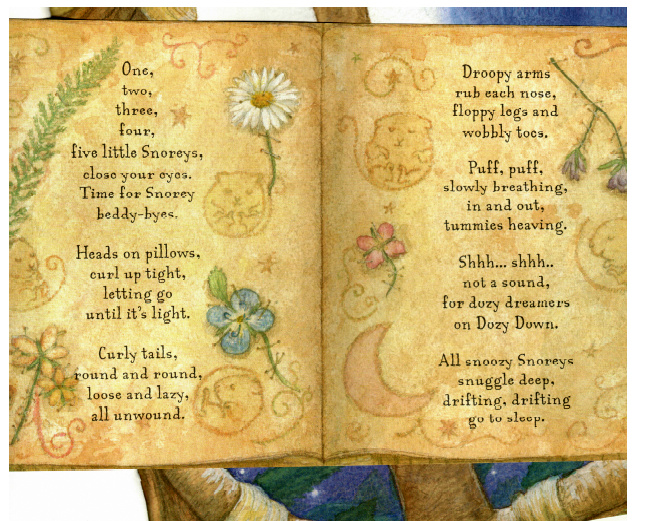 One,
two,
three,
four,
five little Snoreys,
close your eyes.
Time for Snorey
beddy-byes.
Heads on pillows,
curl up tight,
letting go
until it's light.
Curly tails,
round and round,
loose and lazy,
all unwound.
Droopy arms
rub each nose,
floppy legs and
wobbly toes.
Puff, puff,
slowly breathing,
in and out,
tummies heaving.
Shhh... shhh..
not a sound,
for dozy dreamers
on Dozy Down.
All snoozy Snoreys
snuggle deep,
drifting, drifting
go to sleep.